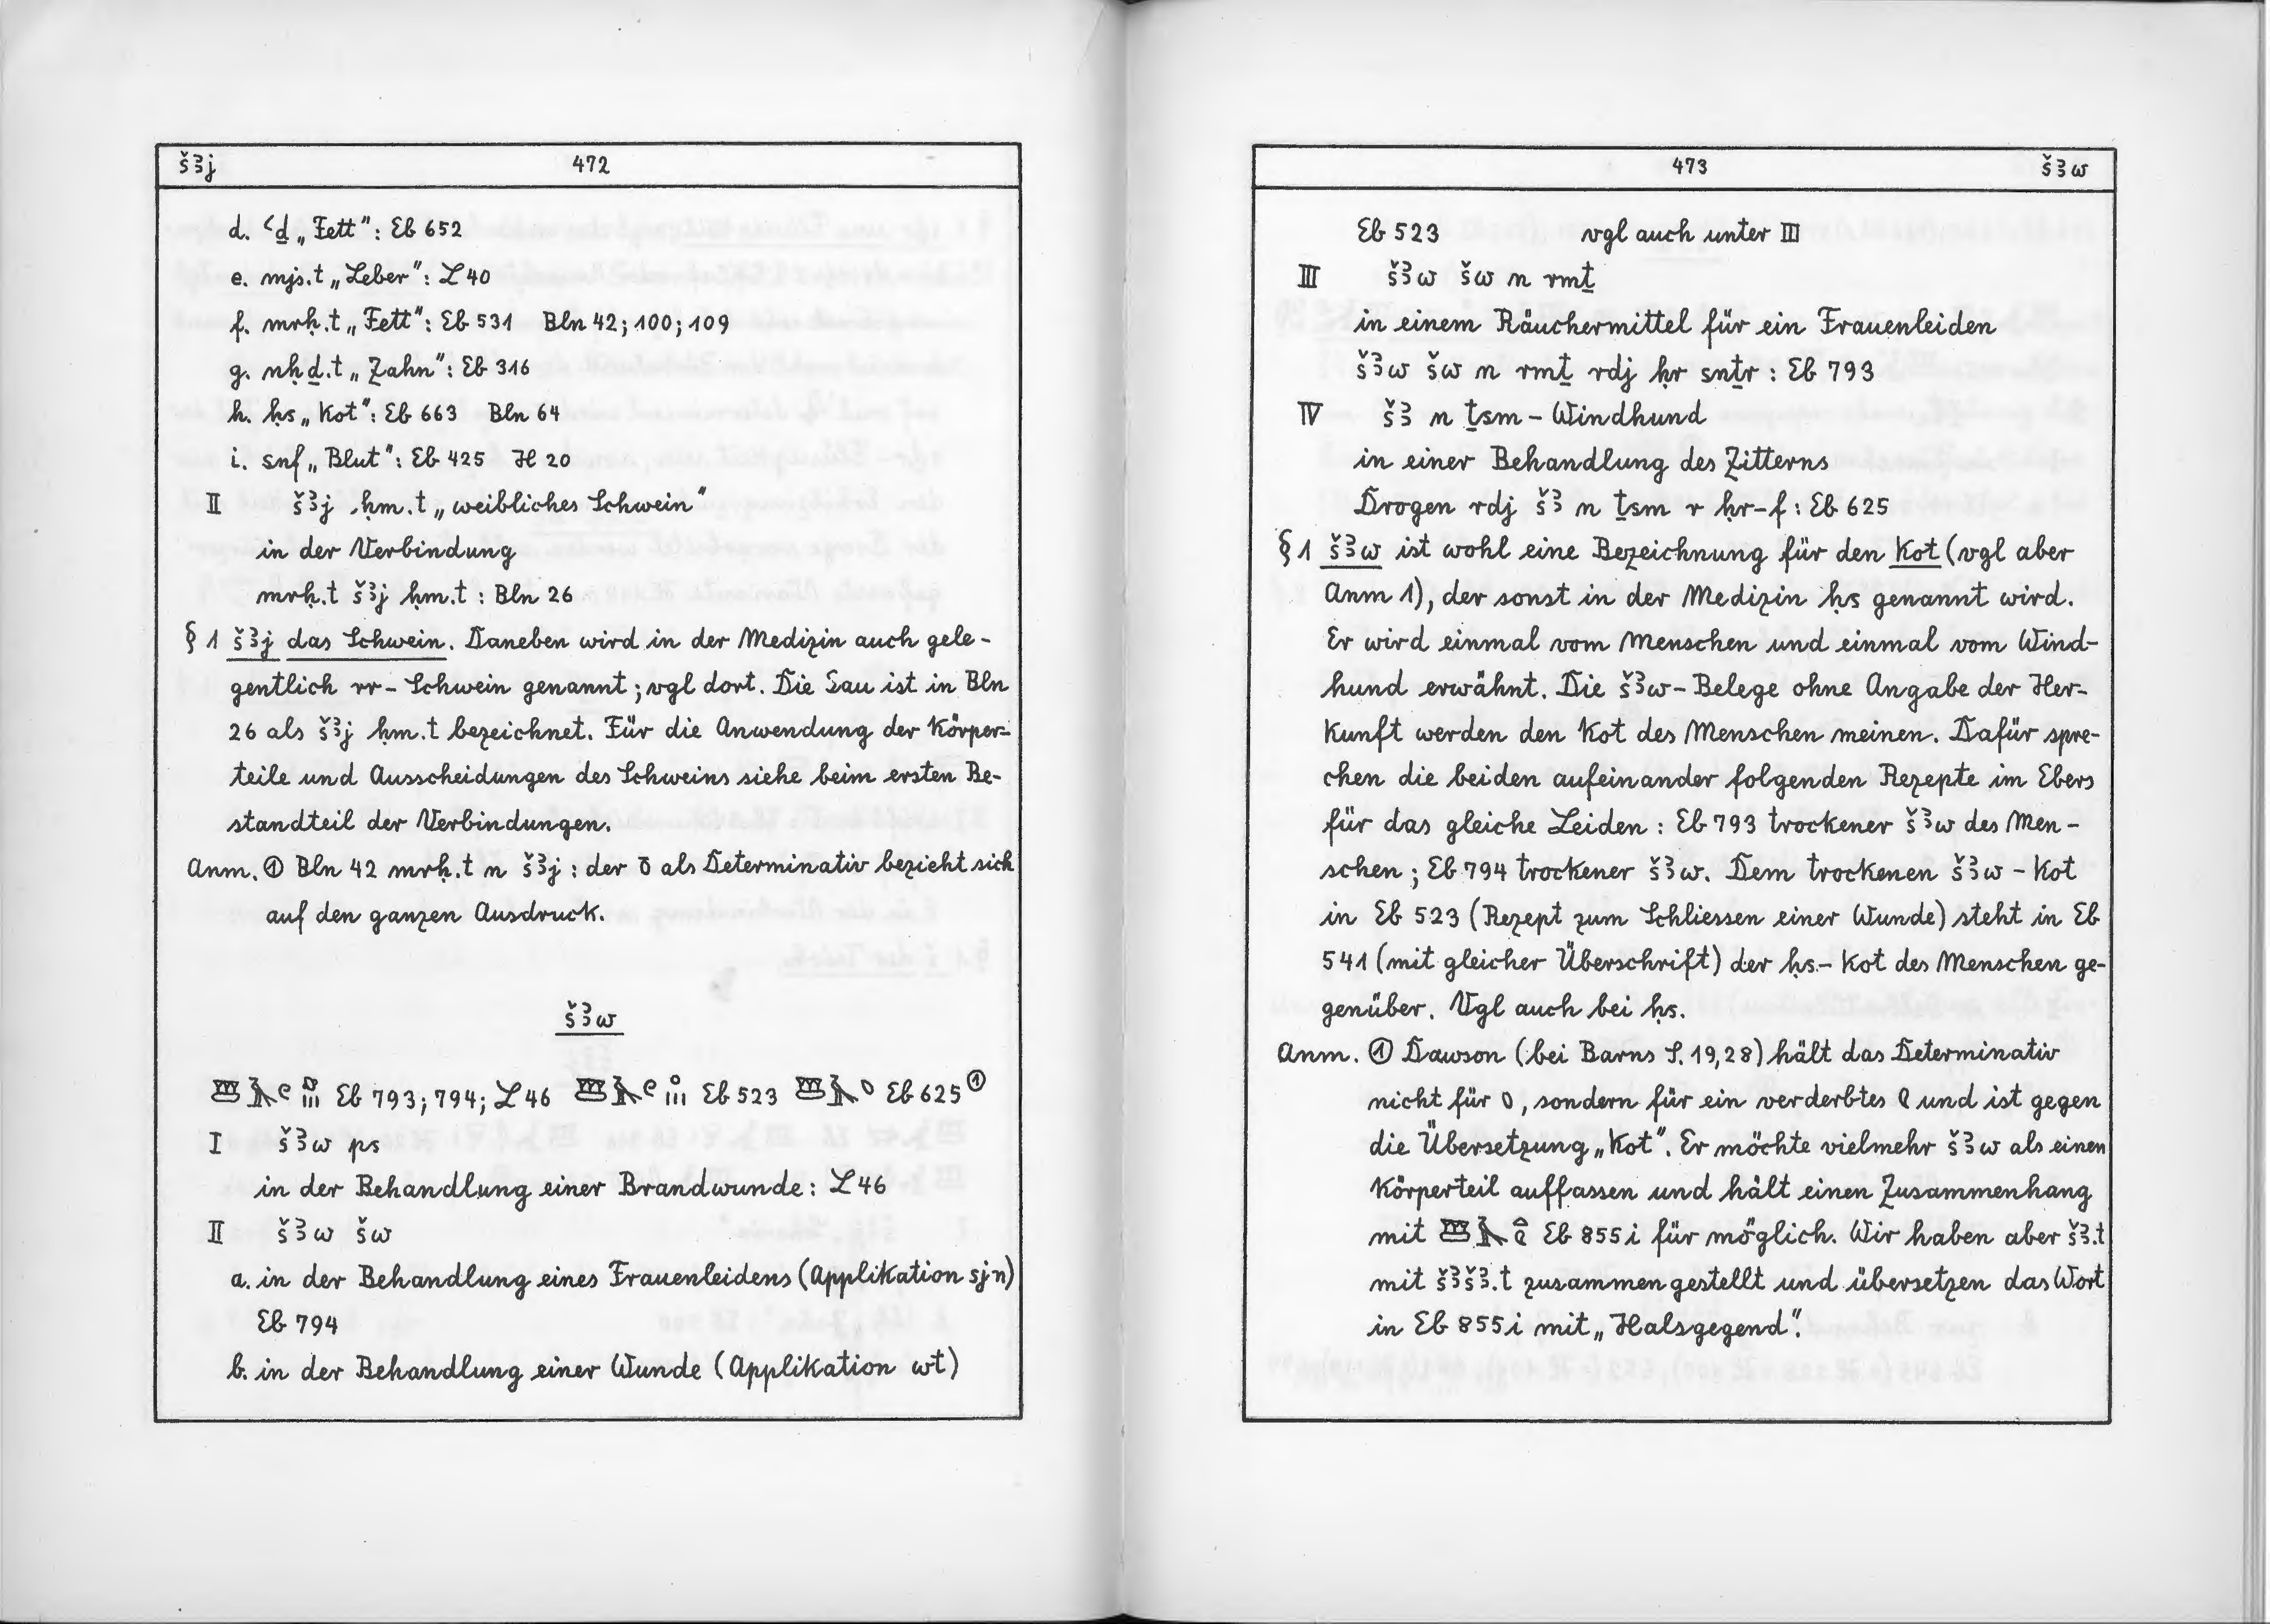 šꜣj 472
d. ꜥḏ „Fett“: Eb 652
e. mjs.t „Leber“: L 40
f. mrḥ.t „Fett“: Eb 531 Bln 42; 100; 109
g. nḥḏ.t „Zahn“: Eb 316
h. ḥs „Kot“: Eb 663 Bln 64
i. snf „Blut“: Eb 425 H 20
II šꜣj ḥm.t „weibliches Schwein“
in der Verbindung
mrḥ.t šꜣj ḥm.t : Bln 26
§ 1 šꜣj das Schwein. Daneben wird in der Medizin auch gele-
gentlich rr - Schwein genannt; vgl dort. Die Sau ist in Bln
26 als šꜣj ḥm.t bezeichnet. Für die Anwendung der Körper-
teile und Ausscheidungen des Schweins siehe beim ersten Be-
standteil der Verbindungen.
Anm. ① Bln 42 mrḥ.t n šꜣj : der als Determinativ bezieht sich
auf den ganzen Ausdruck.
šꜣw
Eb 793; 794; L 46 Eb 523 Eb 625 ①
I šꜣw ps
in der Behandlung einer Brandwunde: L 46
II šꜣw šw
a. in der Behandlung eines Frauenleidens (Applikation sjn)
Eb 794
b. in der Behandlung einer Wunde (Applikation wt)
473 šꜣw
Eb 523 vgl auch unter III
III šꜣw šw n rmṯ
in einem Räuchermittel für ein Frauenleiden
šꜣw šw n rmṯ rdj ḥr snṯr : Eb 793
IV šꜣ n ṯsm - Windhund
in einer Behandlung des Zitterns
Drogen rdj šꜣ n ṯsm r ḥr-f : Eb 625
§ 1 šꜣw ist wohl eine Bezeichnung für den Kot (vgl aber
Anm 1), der sonst in der Medizin ḥs genannt wird.
Er wird einmal vom Menschen und einmal vom Wind-
hund erwähnt. Die šꜣw - Belege ohne Angabe der Her-
kunft werden den Kot des Menschen meinen. Dafür spre-
chen die beiden aufeinander folgenden Rezepte im Ebers
für das gleiche Leiden : Eb 793 trockener šꜣw des Men-
schen ; Eb 794 trockener šꜣw. Dem trockenen šꜣw - Kot
in Eb 523 (Rezept zum Schliessen einer Wunde) steht in Eb
541 (mit gleicher Überschrift) der ḥs - Kot des Menschen ge-
genüber. Vgl auch bei ḥs.
Anm. ① Dawson (bei Barns S. 19,28) hält das Determinativ
nicht für , sondern für ein verderbtes und ist gegen
die Übersetzung „Kot“. Er möchte vielmehr šꜣw als einen
Körperteil auffassen und hält einen Zusammenhang
mit Eb 855 i für möglich. Wir haben aber šꜣ.t
mit šꜣšꜣ.t zusammengestellt und übersetzen das Wort
in Eb 855 i mit „Halsgegend“.